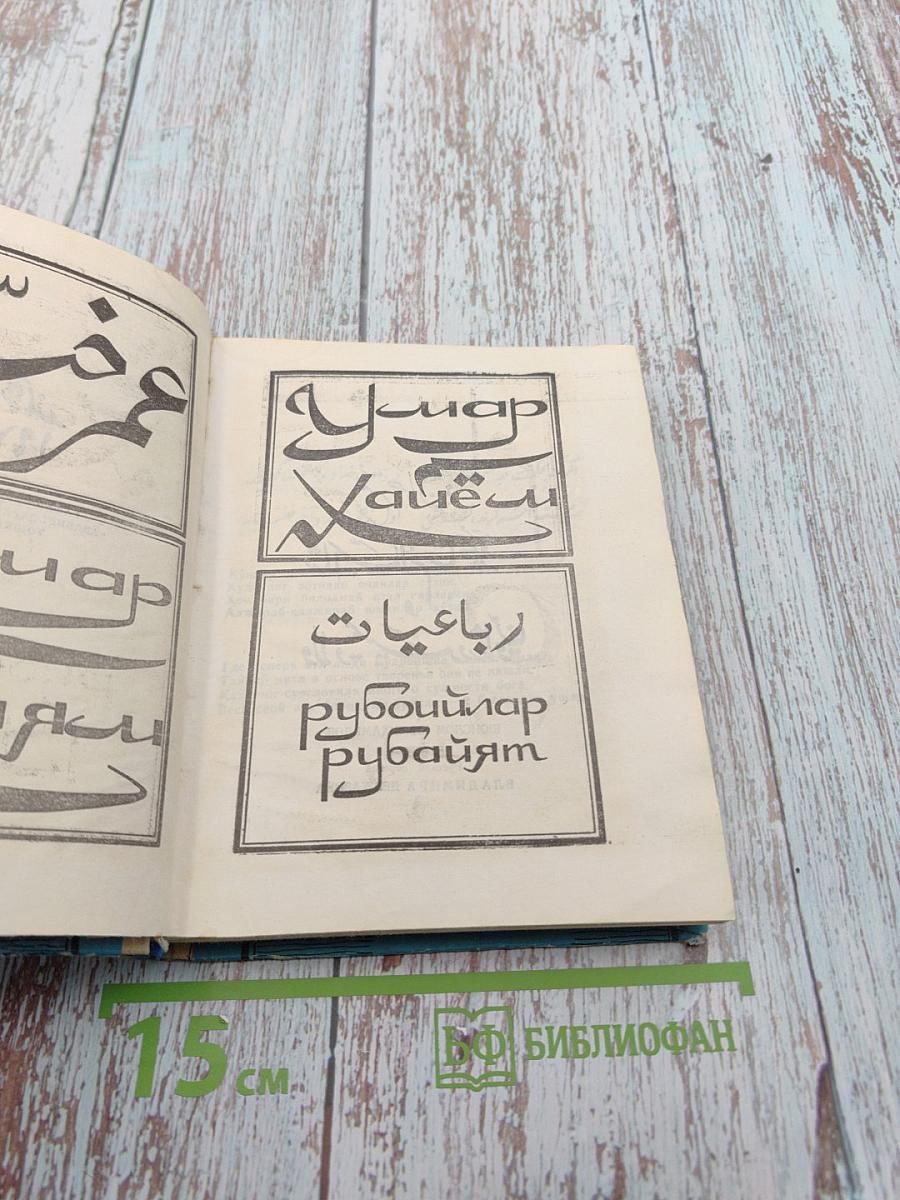 عمر
мар
ям
Умар
Хайём
رباعیات
рубоийлар
рубайят
15 см
БФ БИБЛИОФАН